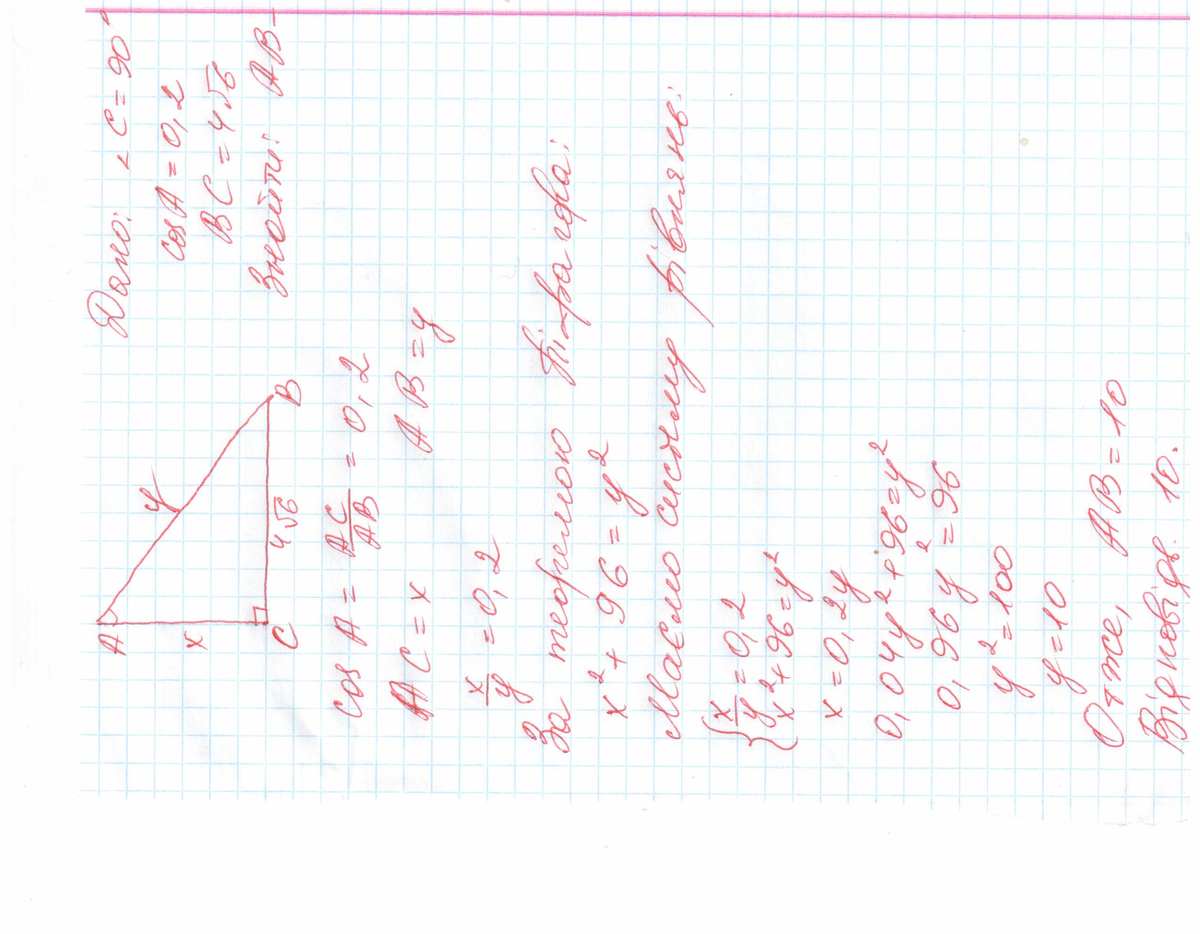 Дано: ∠ C = 90°
cos A = 0,2
BC = 4√6
Знойти: AB -
A
y
x
C
4√6
B
cos A = AC/AB = 0,2
AC = x AB = y
x/y = 0,2
За теоремою Піфагора:
x² + 96 = y²
Маємо систему рівнянь:
{ x/y = 0,2
x² + 96 = y²
x = 0,2y
0,04y² + 96 = y²
0,96 y² = 96
y² = 100
y = 10
Отже, AB = 10
Відповідь. 10.